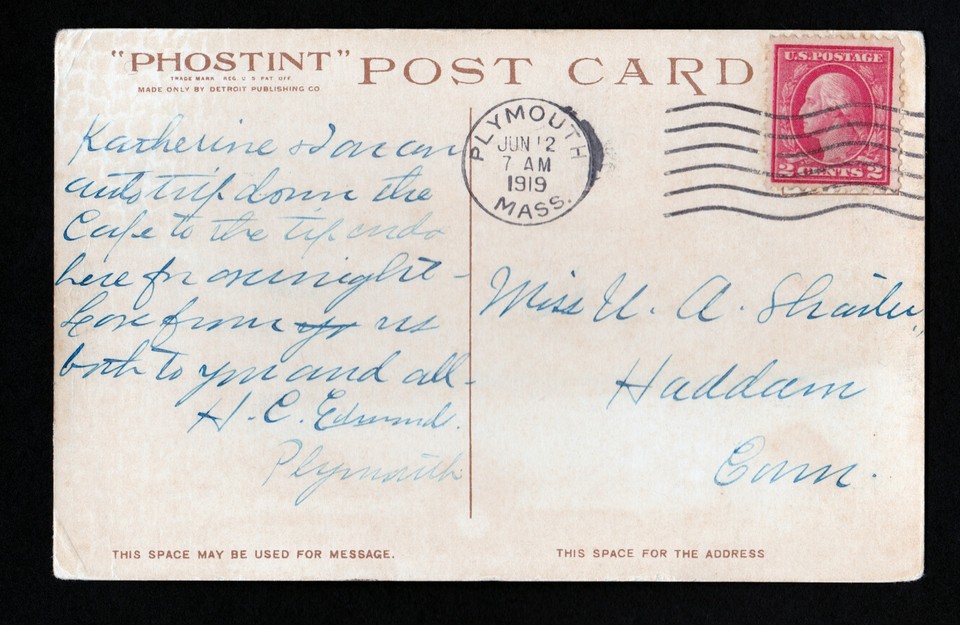 "PHOSTINT" POST CARD
TRADE MARK REG. U.S. PAT. OFF.
MADE ONLY BY DETROIT PUBLISHING CO
U.S. POSTAGE
2 CENTS 2
PLYMOUTH
JUN 12
7 AM
1919
MASS.
Katherine & I on an
auto trip down the
Cape to the tip ends
here for overnight -
Love from us
both to you and all -
H. C.
Plymouth
Miss A.
Haddam
Conn.
THIS SPACE MAY BE USED FOR MESSAGE.
THIS SPACE FOR THE ADDRESS